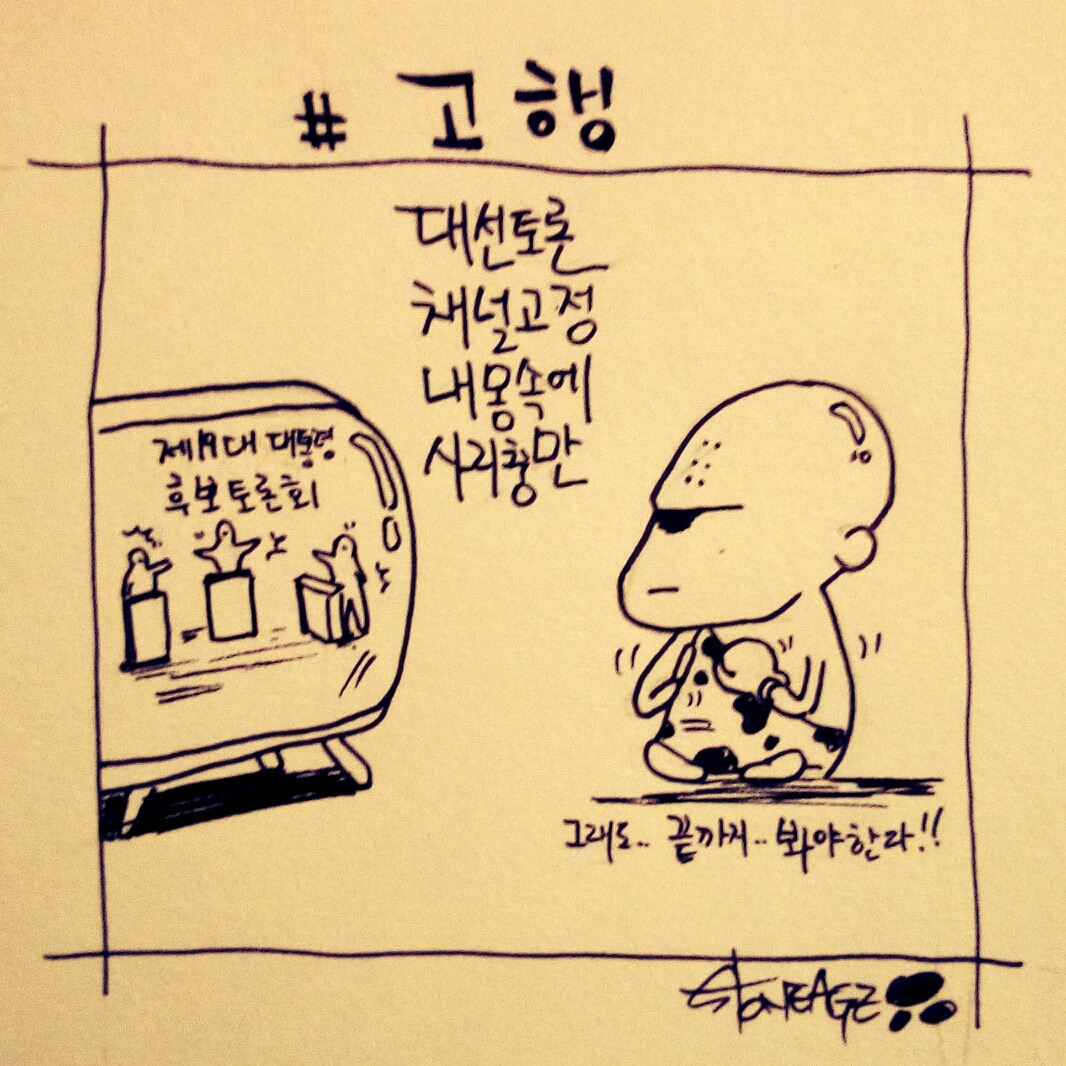 # 고행
대선토론
채널고정
내몸속에
사리충만
제19대 대통령
후보토론회
그래도.. 끝까지.. 봐야한다!!
STONEAGE